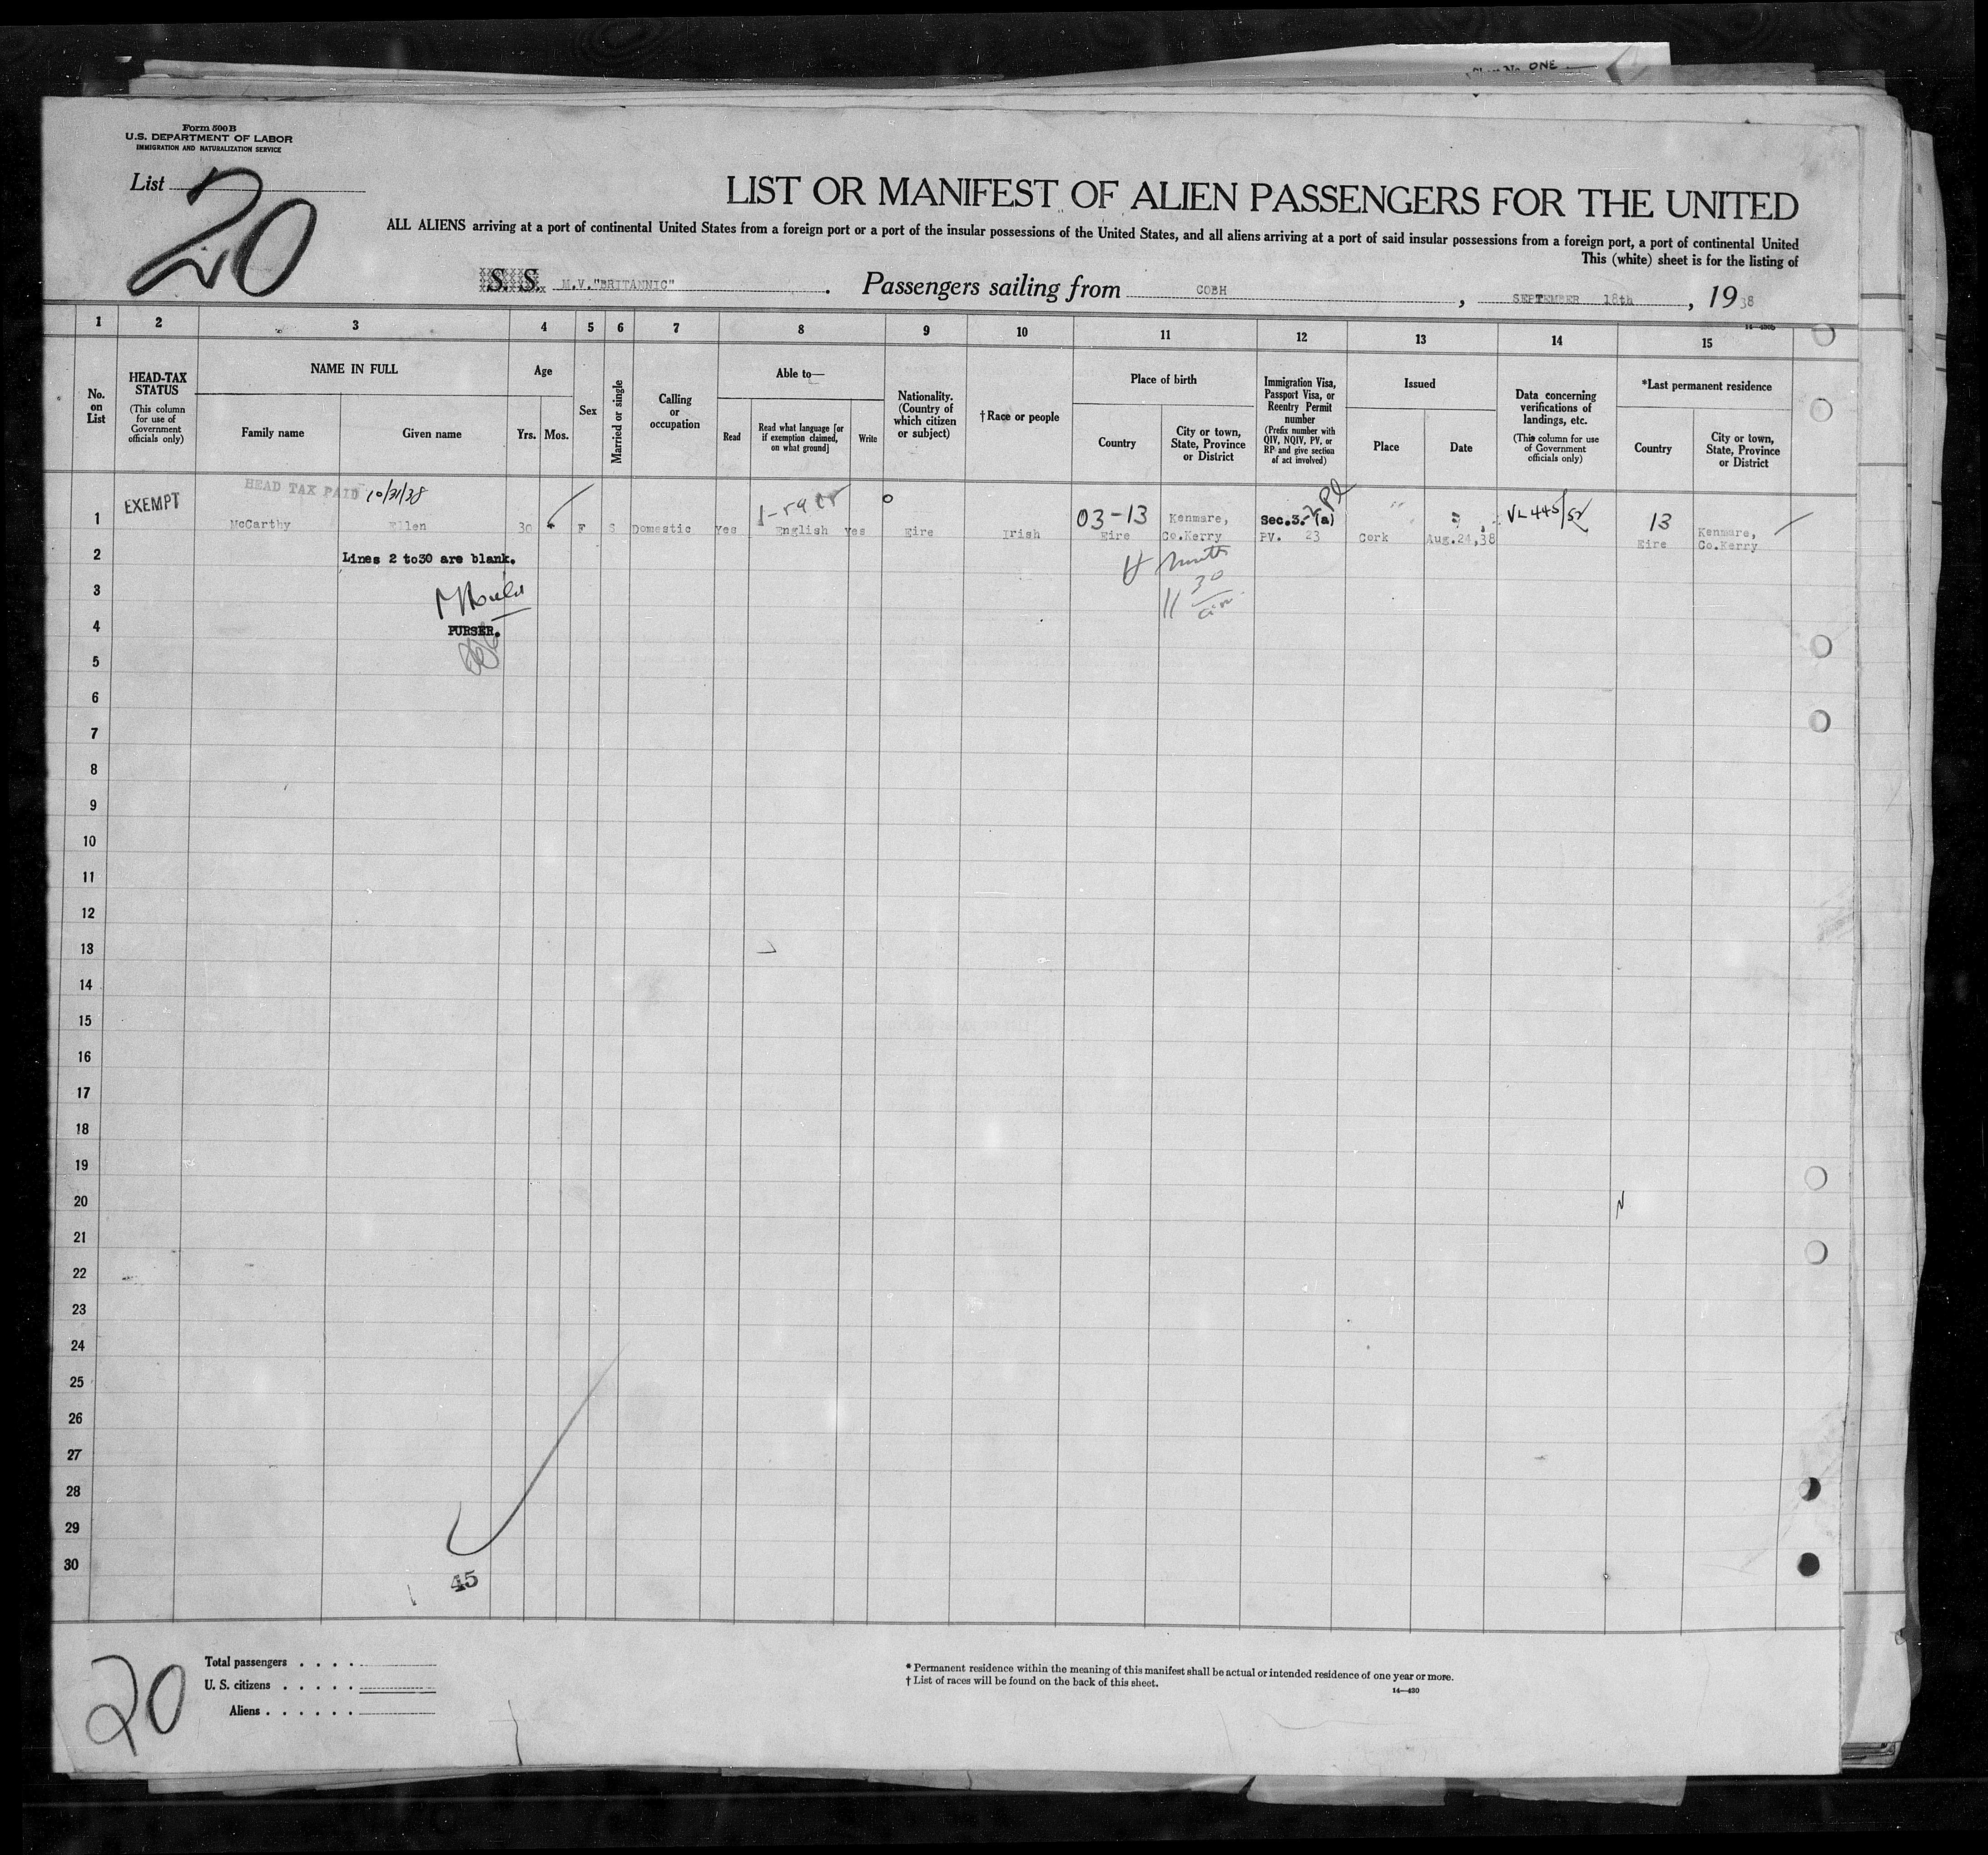 ONE
Form 500B
U.S. DEPARTMENT OF LABOR
IMMIGRATION AND NATURALIZATION SERVICE
List 20
LIST OR MANIFEST OF ALIEN PASSENGERS FOR THE UNITED
ALL ALIENS arriving at a port of continental United States from a foreign port or a port of the insular possessions of the United States, and all aliens arriving at a port of said insular possessions from a foreign port, a port of continental United
This (white) sheet is for the listing of
S. S. M.V."BRITANNIC". Passengers sailing from COBH, SEPTEMBER 18th, 1938
14—430b
1 2 3 4 5 6 7 8 9 10 11 12 13 14 15
No. on List
HEAD-TAX STATUS
(This column for use of Government officials only)
NAME IN FULL
Family name Given name
Age
Yrs. Mos.
Sex
Married or single
Calling or occupation
Able to—
Read
Read what language [or if exemption claimed, on what ground]
Write
Nationality. (Country of which citizen or subject)
†Race or people
Place of birth
Country
City or town, State, Province or District
Immigration Visa, Passport Visa, or Reentry Permit number
(Prefix number with QIV, NQIV, PV, or RP and give section of act involved)
Issued
Place Date
Data concerning verifications of landings, etc.
(This column for use of Government officials only)
*Last permanent residence
Country
City or town, State, Province or District
HEAD TAX PAID 10/31/38
EXEMPT
03-13
Sec.3.-(a)
VL 445/52
13
1 McCarthy Ellen 30 F S Domestic Yes English Yes Eire Irish Eire Kenmare, Co.Kerry PV. 23 Cork Aug.24,38 Eire Kenmare, Co.Kerry
2 Lines 2 to30 are blank.
3
4 PURSER.
5
6
7
8
9
10
11
12
13
14
15
16
17
18
19
20
21
22
23
24
25
26
27
28
29
30
45
20
Total passengers . . . .
U. S. citizens . . . . .
Aliens . . . . . .
* Permanent residence within the meaning of this manifest shall be actual or intended residence of one year or more.
† List of races will be found on the back of this sheet.
14—430